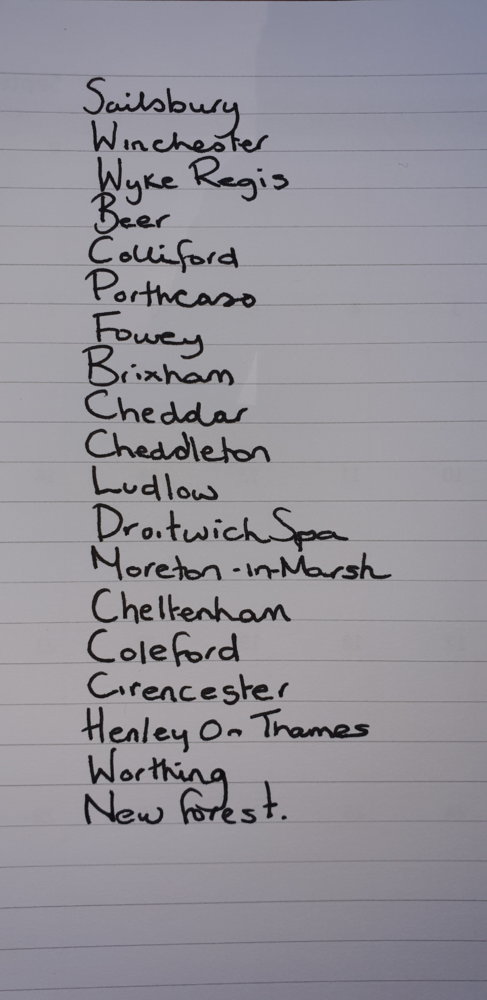 Sailsbury
Winchester
Wyke Regis
Beer
Colliford
Porthcaso
Fowey
Brixham
Cheddar
Cheddleton
Ludlow
Droitwich Spa
Moreton-in-Marsh
Cheltenham
Coleford
Cirencester
Henley On Thames
Worthing
New forest.